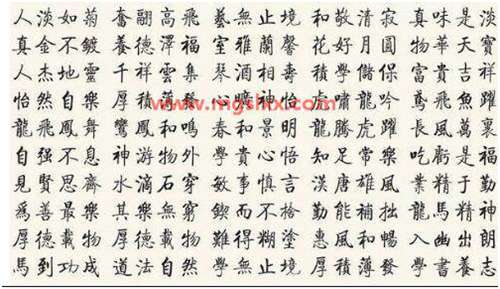 人淡如菊 奮翮高飛 藝無止境 和敬清寂 真味是淡
真金不鍍 養德澤福 室雅蘭馨 花好月圓 物華天寶
人杰地靈 千祥雲集 琴酒相壽 積學儲保 富貴吉祥
怡然自樂 厚積薄發 心曠神怡 虎嘯龍吟 鳶飛魚躍
www.mgshx.com
龍飛鳳舞 鸞鳳和鳴 春和景明 龍騰虎躍 長風萬裏
自强不息 神游物外 學貴心悟 知足常樂 吃虧是福
見賢思齊 水滴石穿 敏事慎言 漢唐雄風 業精于勤
爲善最樂 其樂無窮 鍥而不捨 勤能補拙 龍馬精神
厚德載物 厚德載物 難得糊塗 惠風和暢 入幽出朗
馬到功成 道法自然 學無止境 厚積薄發 學書養志